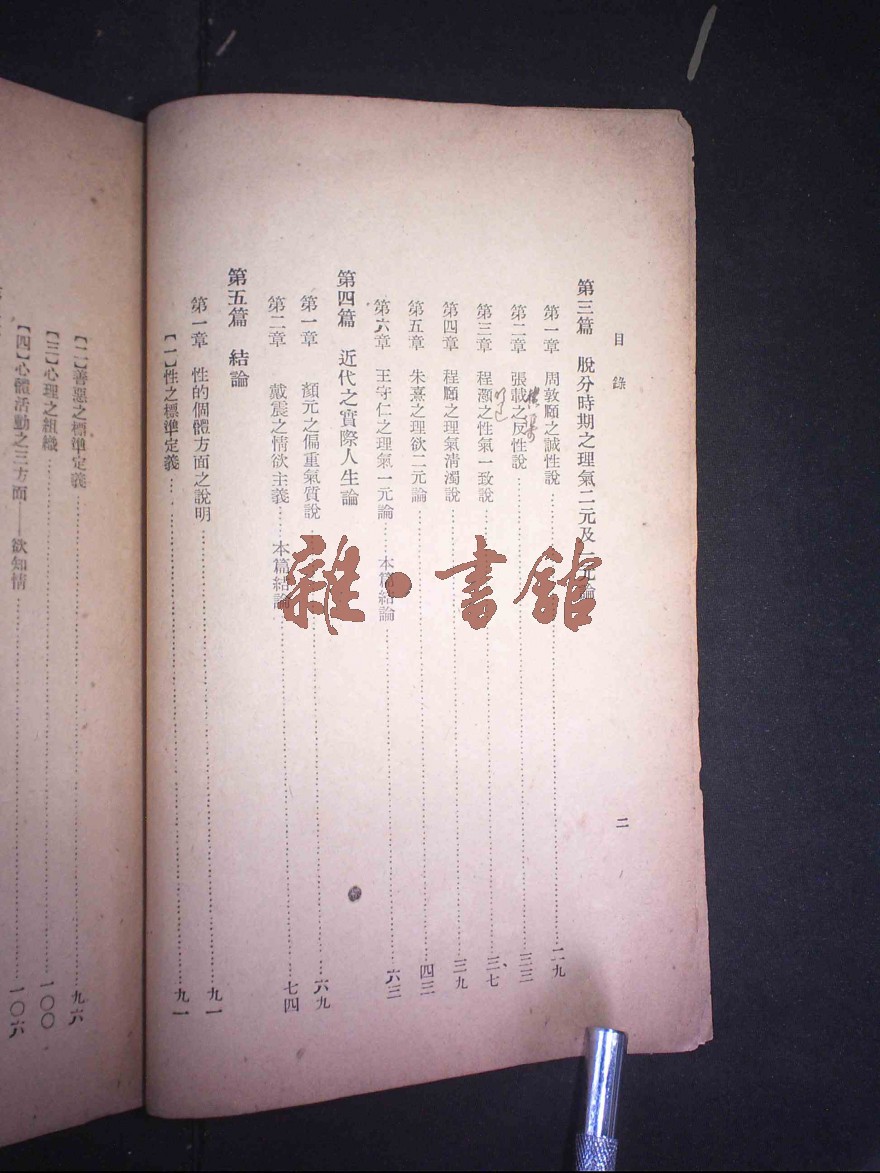 目錄
二
第三篇 脫分時期之理氣二元及一元論
第一章 周敦頤之誠性說……二九
第二章 張載之反性說……三三
第三章 程灝之性氣一致說……三七
第四章 程頤之理氣清濁說……三九
第五章 朱熹之理欲二元論……四三
第六章 王守仁之理氣一元論……本篇結論……六三
第四篇 近代之實際人生論
第一章 顏元之偏重氣質說……六九
第二章 戴震之情欲主義……本篇結論……七四
第五篇 結論
第一章 性的個體方面之說明……九一
【一】性之標準定義……九一
【二】善惡之標準定義……九六
【三】心理之組織……一〇〇
【四】心體活動之三方面——欲知情……一〇六
雜·書館